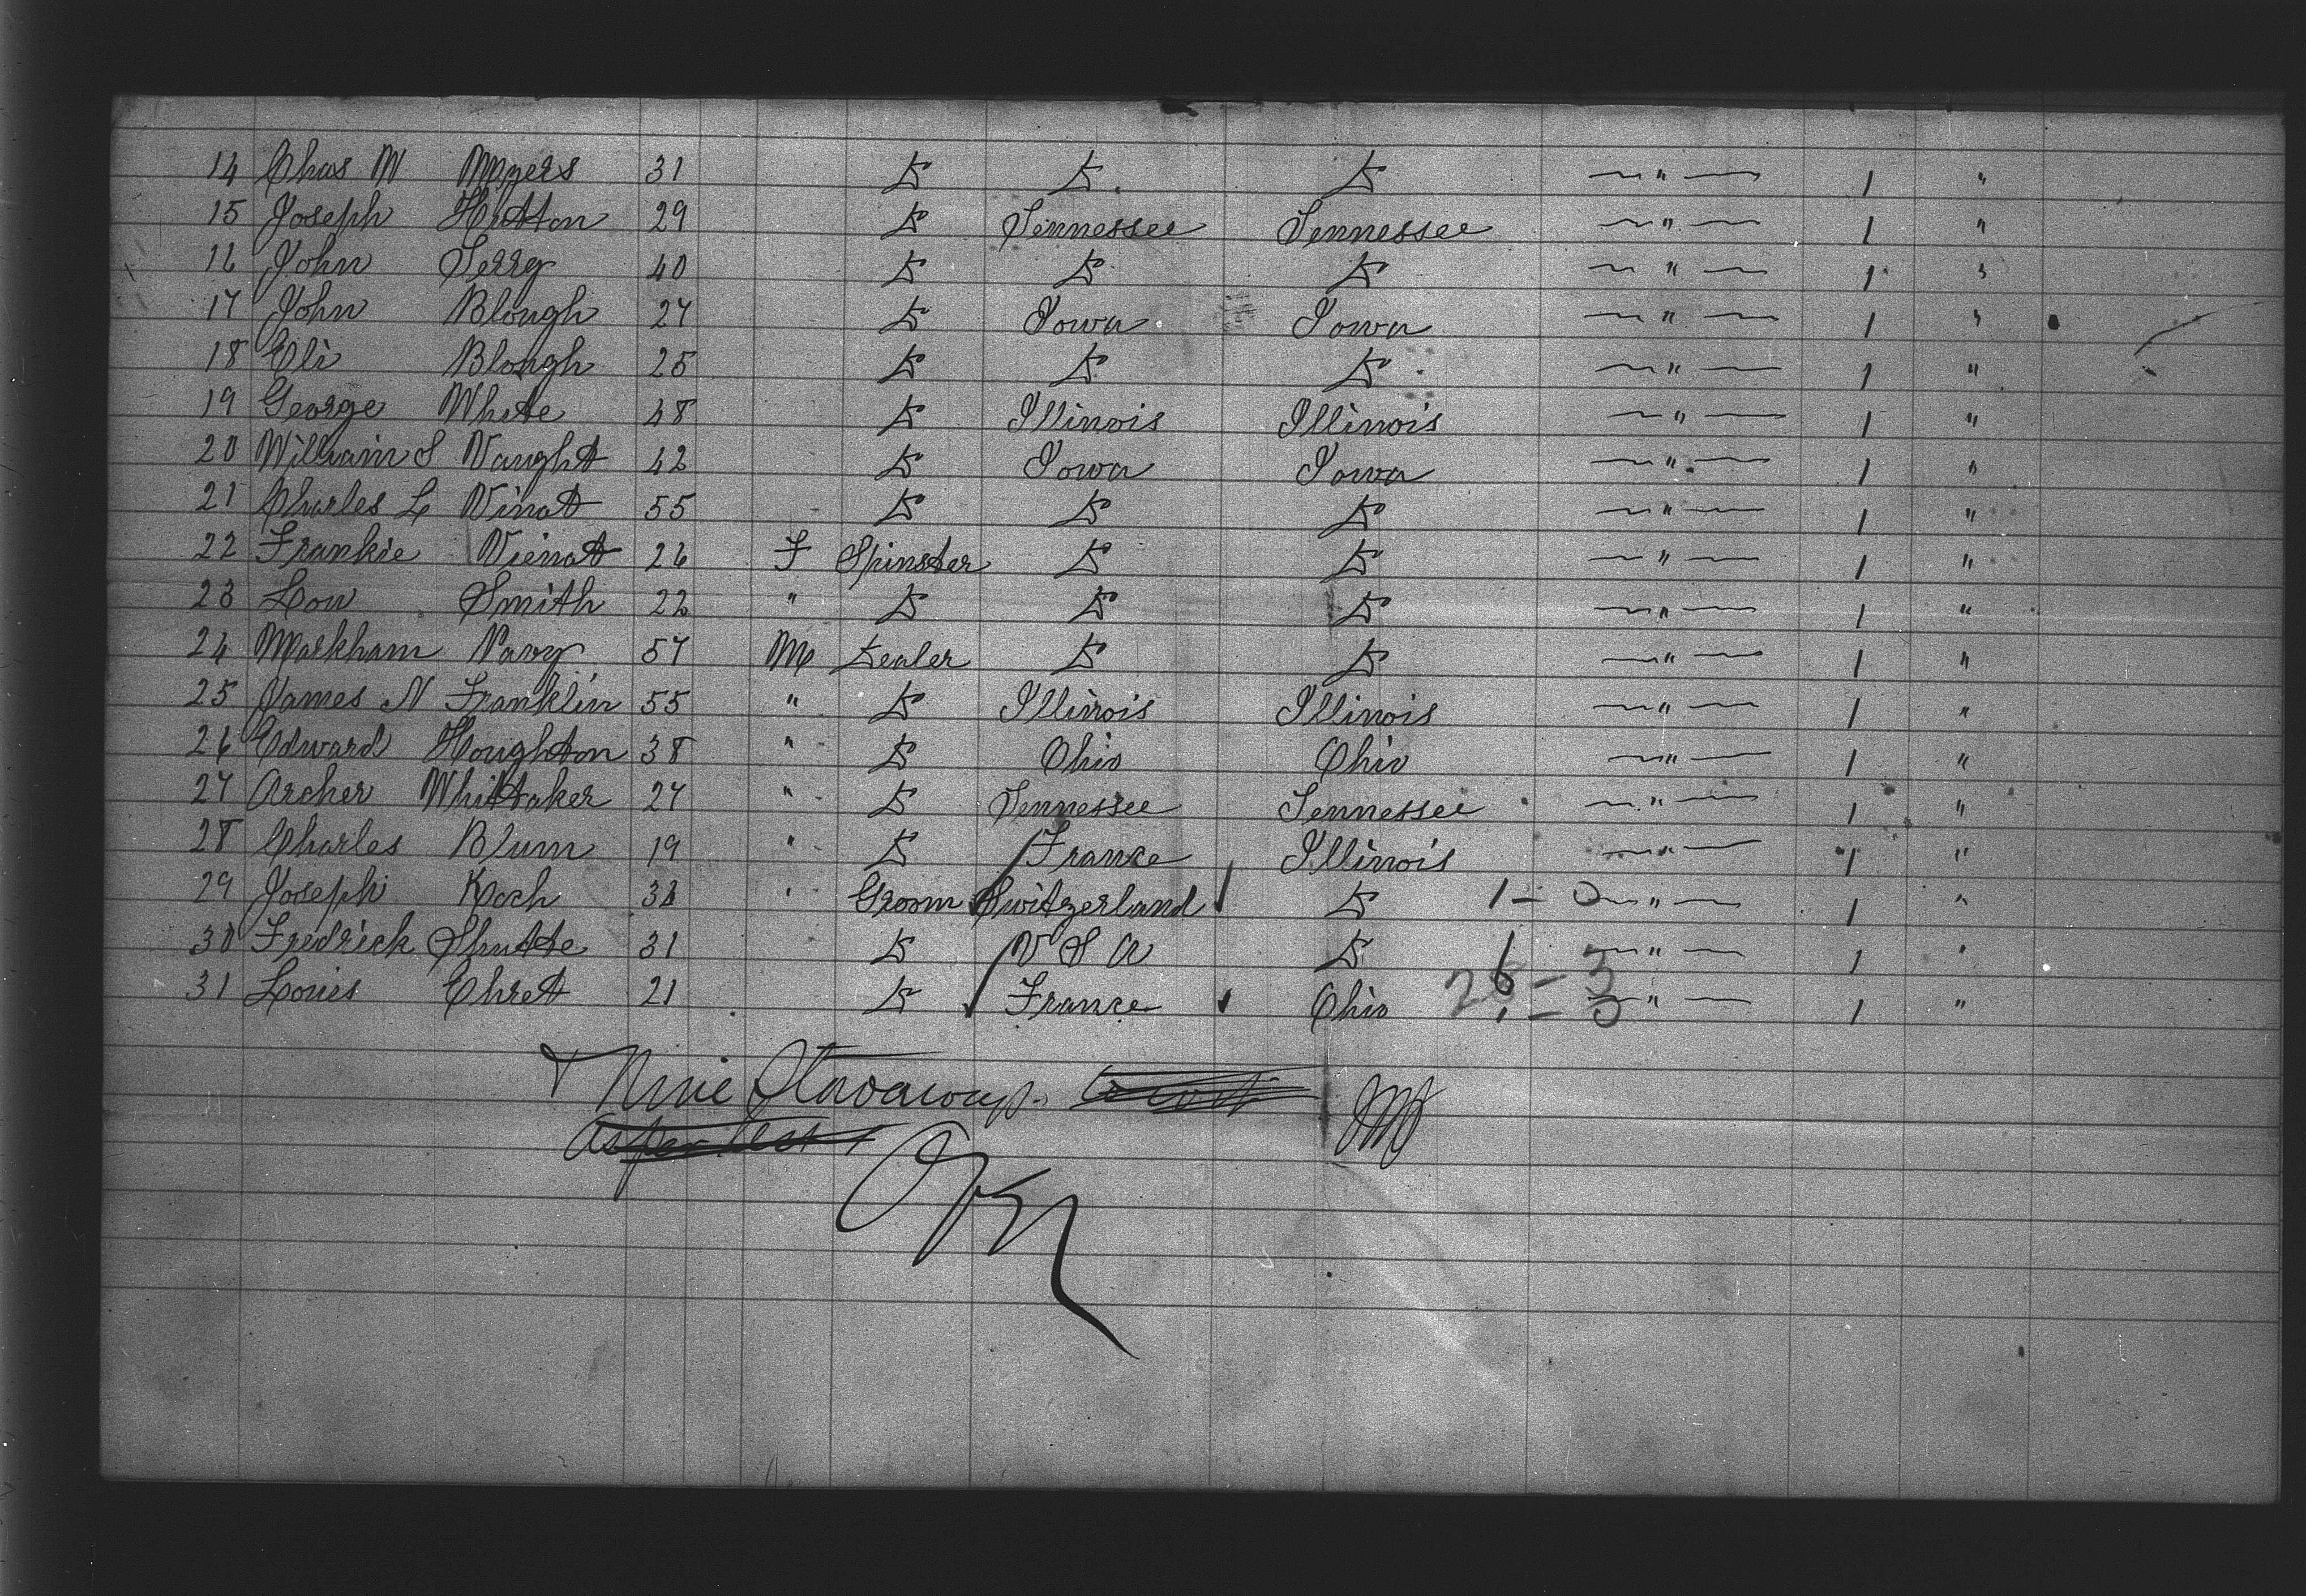 14 Chas W Myers 31 Do Do Do — " — 1 "
15 Joseph Hutton 29 Do Tennessee Tennessee — " — 1 "
16 John Terry 40 Do Do Do — " — 1 "
17 John Blough 27 Do Iowa Iowa — " — 1 "
18 Eli Blough 25 Do Do Do — " — 1 "
19 George White 48 Do Illinois Illinois — " — 1 "
20 William S Vaught 42 Do Iowa Iowa — " — 1 "
21 Charles L Vinot 55 Do Do Do — " — 1 "
22 Frankie Vienot 26 F Spinster Do Do — " — 1 "
23 Lou Smith 22 " Do Do Do — " — 1 "
24 Markham Navy 57 M Dealer Do Do — " — 1 "
25 James N Franklin 55 " Do Illinois Illinois — " — 1 "
26 Edward Houghton 38 " Do Ohio Ohio — " — 1 "
27 Archer Whittaker 27 " Do Tennessee Tennessee — " — 1 "
28 Charles Blum 19 " Do France Illinois — " — 1 "
29 Joseph Koch " Groom Switzerland Do 1 – 0 — " — 1 "
30 Fredrick Shutte 31 Do U S A Do — " — 1 "
31 Louis Ehret 21 Do France Ohio — " — 1 "
Nine Stowaways
as per list
OK